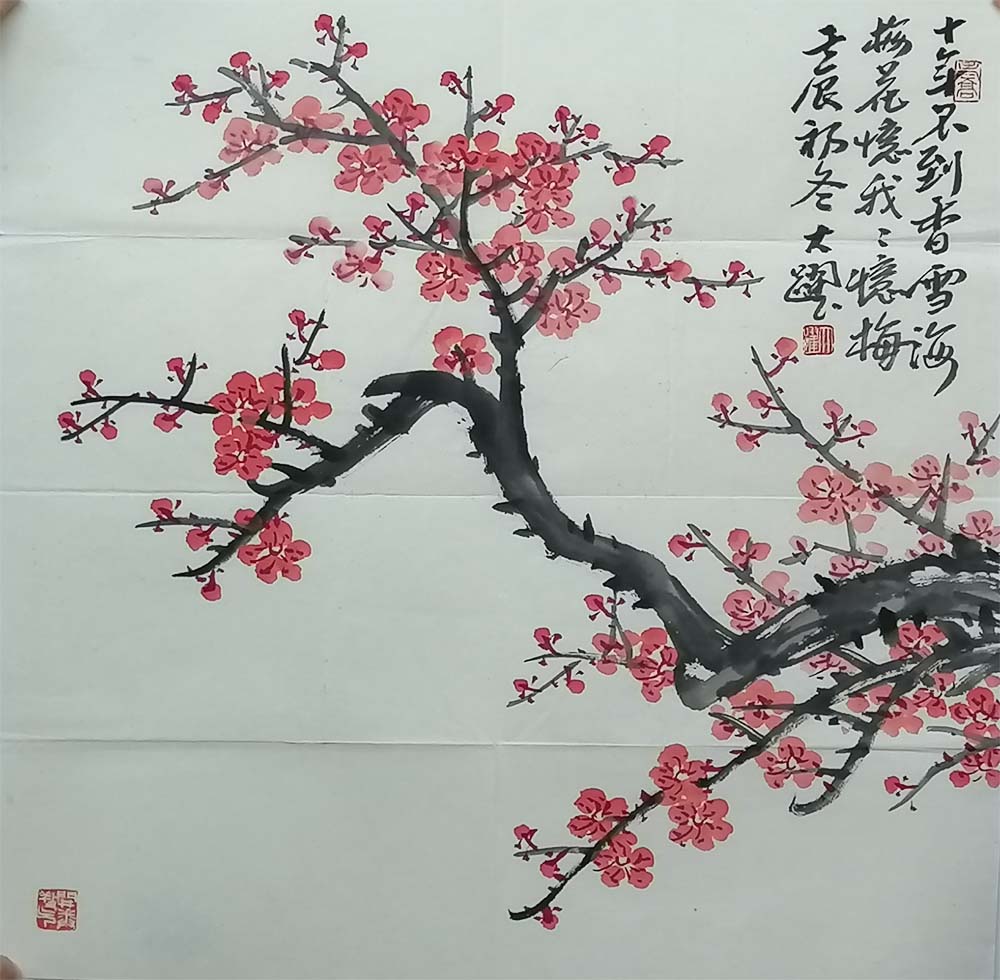 十年不到香雪海
梅花憶我〻憶梅
壬辰初冬大